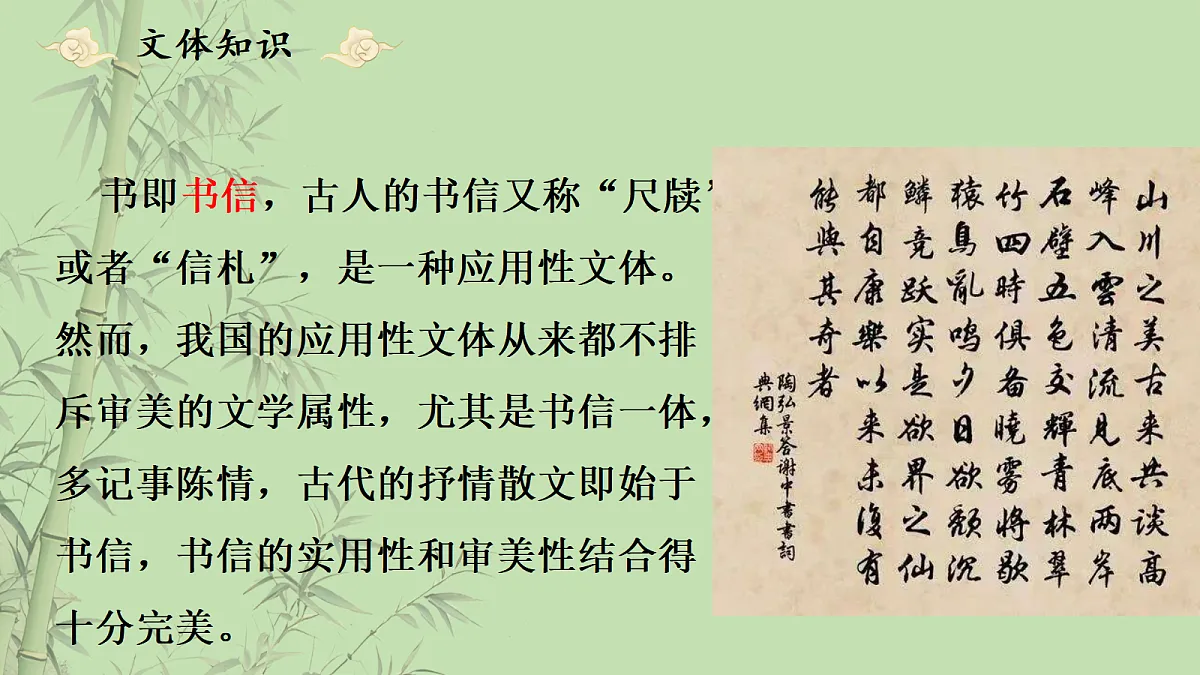 文体知识
书即书信，古人的书信又称“尺牍”
或者“信札”，是一种应用性文体。
然而，我国的应用性文体从来都不排
斥审美的文学属性，尤其是书信一体，
多记事陈情，古代的抒情散文即始于
书信，书信的实用性和审美性结合得
十分完美。
山川之美古来共谈高
峰入雲清流見底两岸
石壁五色交輝青林翠
竹四時俱备曉雾將歇
猿鳥亂鸣夕日欲頹沉
鳞竞跃实是欲界之仙
都自康樂以来未復有
能與其奇者
陶弘景答谢中書書詞
典綱集